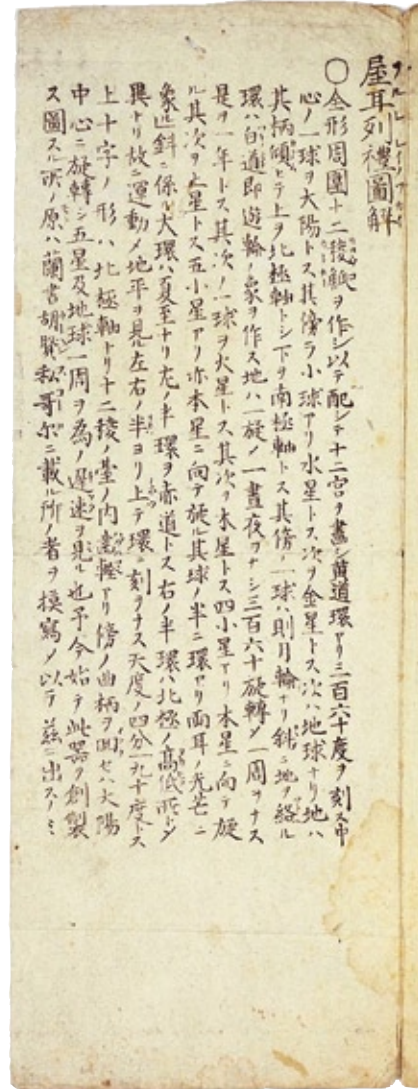 屋耳列禮圖解
〇全形周圍十二稜觚ヲ作シ以テ配シテ十二宮ヲ畫シ黄道環アリ三百六十度ヲ刻ス中
心ノ一球ヲ大陽トス其傍ラ小球アリ水星トス次ヲ金星トス次ハ地球ナリ地ハ
其柄傾ヒテ上ヲ北極軸トシ下ヲ南極軸トス其傍ノ一球ハ則月輪ナリ斜ニ地ヲ絡ル
環ハ白道即遊輪ノ象ヲ作ス地ハ一旋ノ一晝夜ヲナシ三百六十旋轉ノ一周ヲナス
是ヲ一年トス其次ノ一球ヲ火星トス其次ヲ木星トス四小星アリ木星ニ向テ旋
ル其次ヲ土星トス五小星アリ亦本星ニ向テ旋ル其球ノ半ニ環アリ両耳ノ光芒ニ
象ル斜ニ係ル大環ハ夏至ナリ左ノ半環ヲ赤道トス右ノ半環ハ北極ノ髙低所トシ
異ナリ故ニ運動ノ地平ヲ見左右ノ半ヨリ上テ環ニ刻ヲナス天度ノ四分一九十度トス
上十字ノ形ハ北極軸ナリ十二稜ノ臺ノ内ニ アリ傍ノ曲柄ヲ囬セハ大陽
中心ニ旋轉シ五星及地球一周ヲ為ノ遅速ヲ見ル也予今始テ此器ヲ創製
ス圖スル所ノ原ハ蘭書 ニ載ル所ノ者ヲ模寫ノ以テ茲ニ出スノミ